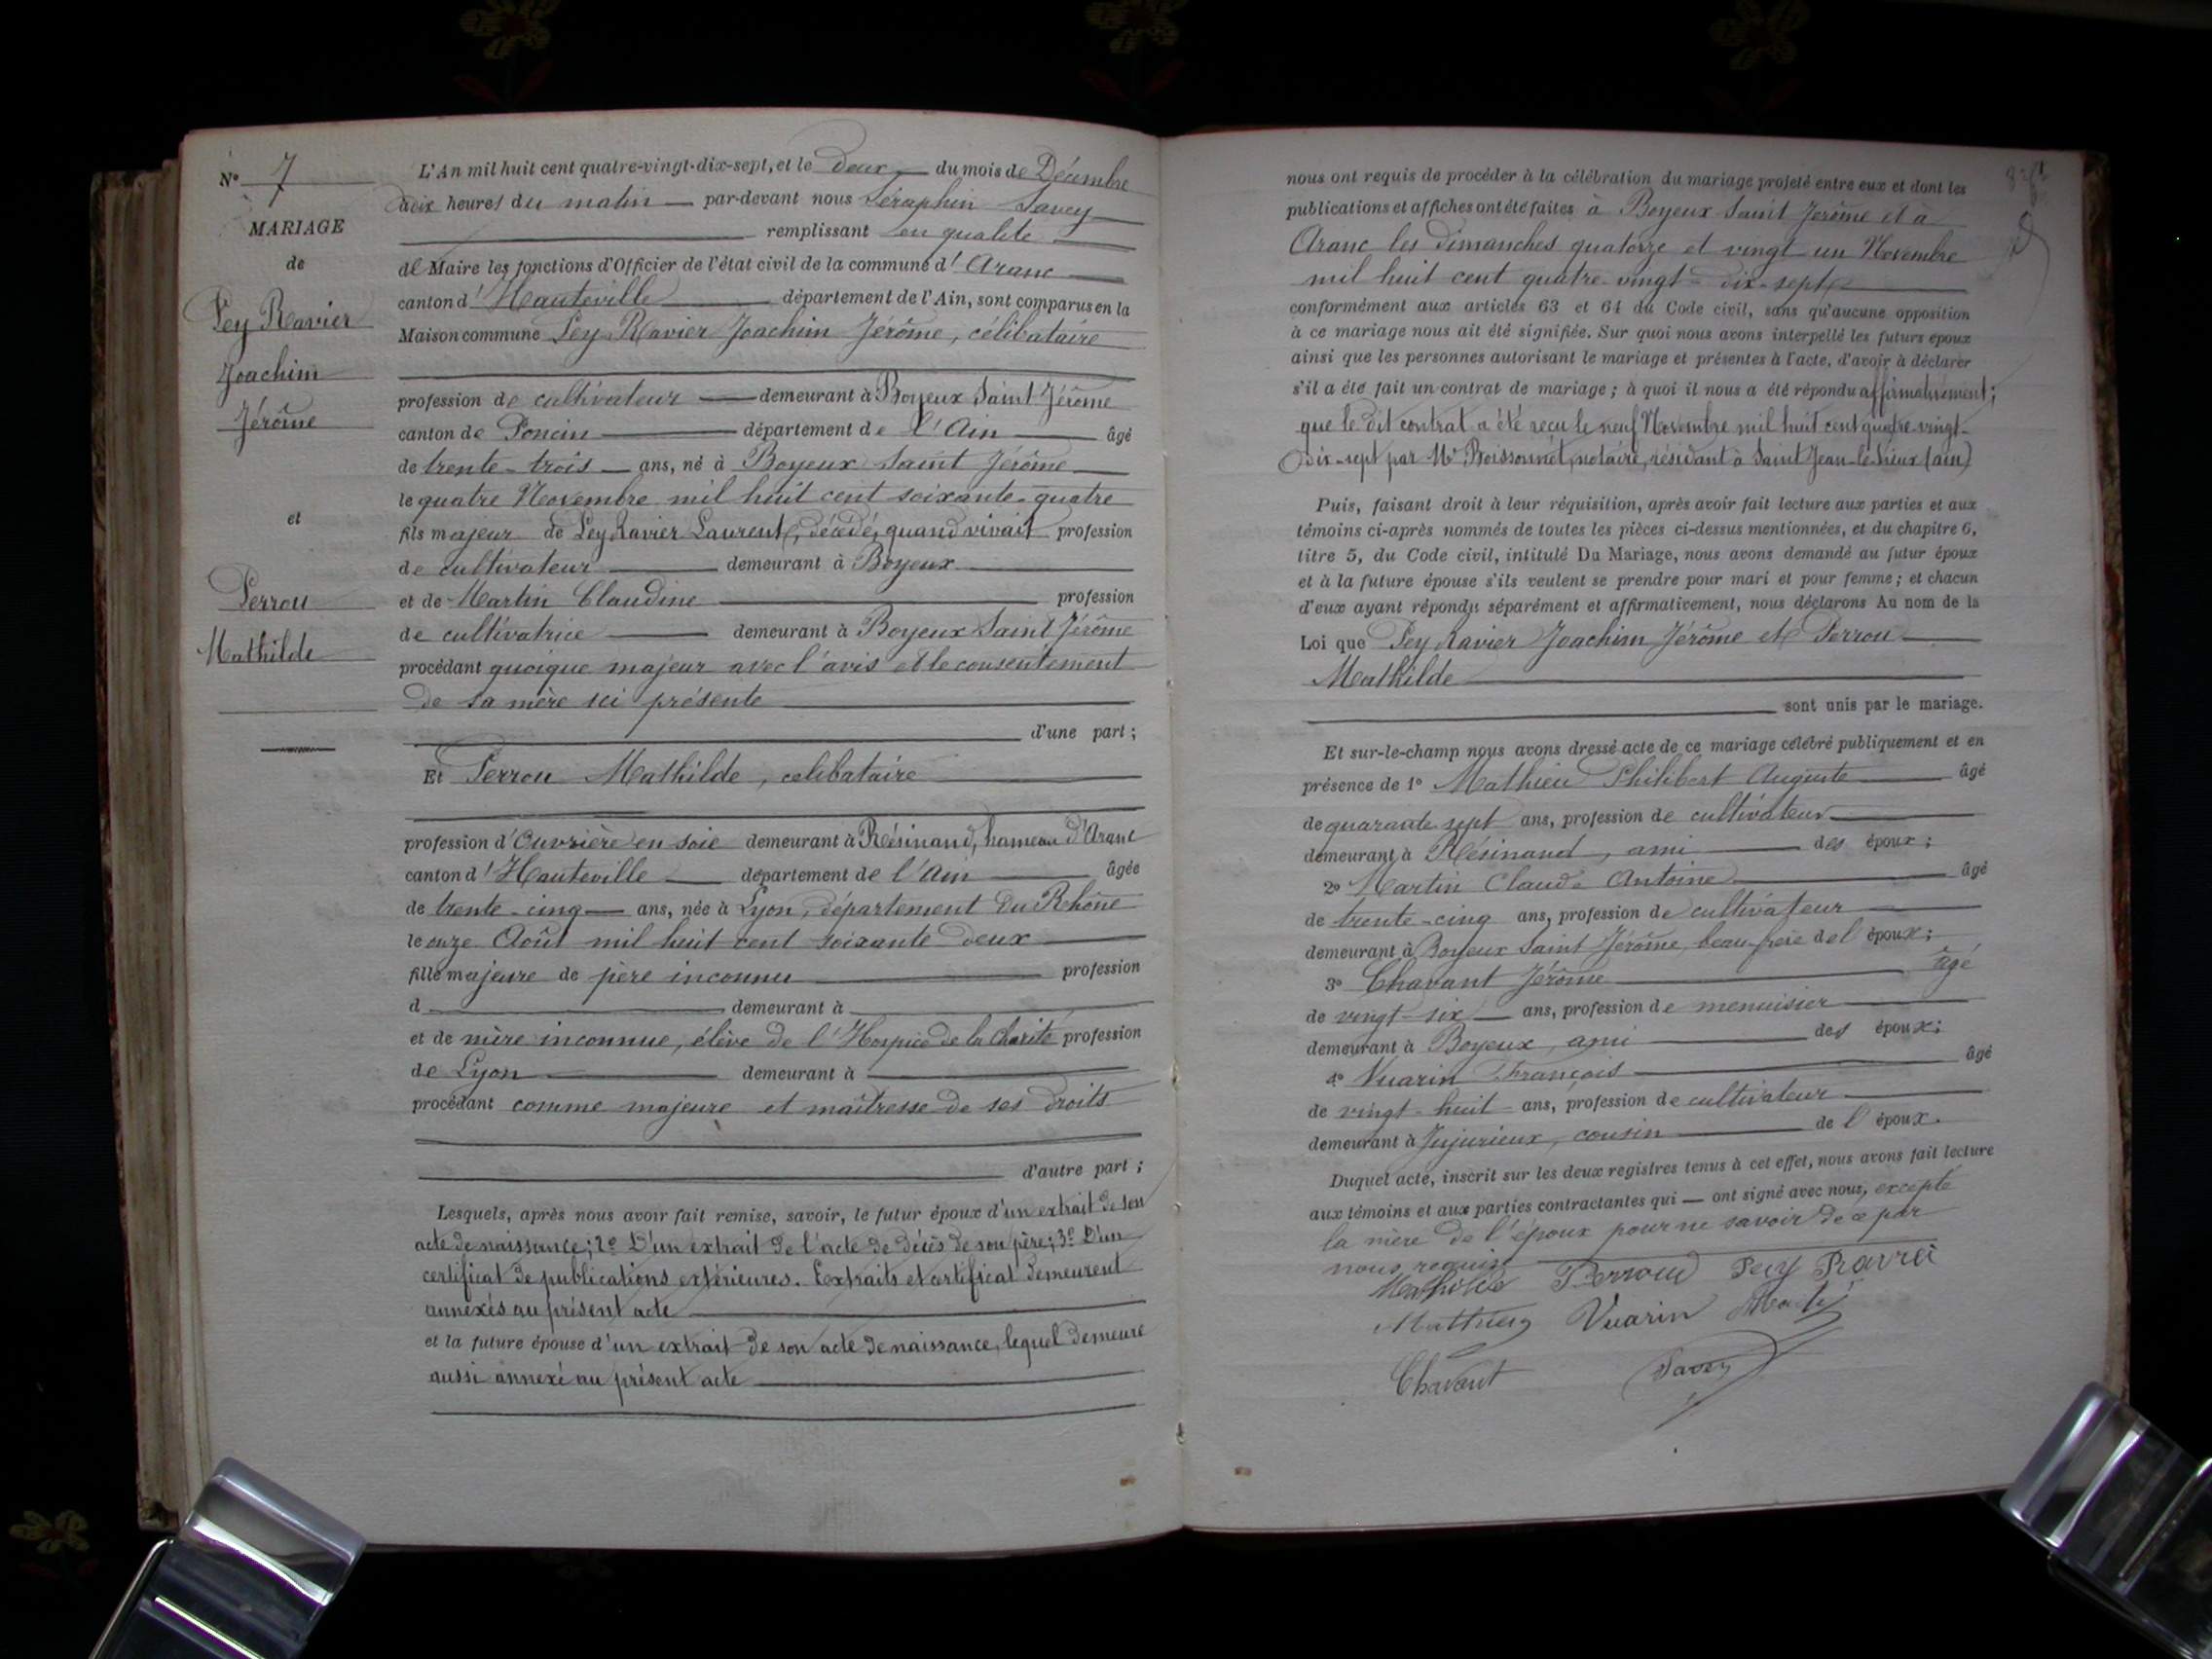 N° 7
MARIAGE
de
Pey Ravier
Joachim
Jérôme
et
Perrou
Mathilde
L'An mil huit cent quatre-vingt-dix-sept, et le deux du mois de Décembre
à dix heures du matin par-devant nous Séraphin Savey
remplissant en qualité
de Maire les fonctions d'Officier de l'état civil de la commune d'Aranc
canton d'Hauteville département de l'Ain, sont comparus en la
Maison commune Pey Ravier Joachim Jérôme, célibataire
profession de cultivateur demeurant à Boyeux Saint Jérôme
canton de Poncin département de l'Ain âgé
de trente-trois ans, né à Boyeux Saint Jérôme
le quatre Novembre mil huit cent soixante-quatre
fils majeur de Pey Ravier Laurent, décédé, quand vivait profession
de cultivateur demeurant à Boyeux
et de Martin Claudine profession
de cultivatrice demeurant à Boyeux Saint Jérôme
procédant quoique majeur avec l'avis et le consentement
de sa mère ici présente
d'une part ;
Et Perrou Mathilde, célibataire
profession d'Ouvrière en soie demeurant à Résinand, hameau d'Aranc
canton d'Hauteville département de l'Ain âgée
de trente-cinq ans, née à Lyon, département du Rhône
le onze Août mil huit cent soixante deux
fille majeure de père inconnu profession
d demeurant à
et de mère inconnue, élève de l'Hospice de la Charité profession
de Lyon demeurant à
procédant comme majeure et maîtresse de ses droits
d'autre part ;
Lesquels, après nous avoir fait remise, savoir, le futur époux d'un extrait de son
acte de naissance; 2° D'un extrait de l'acte de décès de son père; 3° D'un
certificat de publications extérieures. Extraits et certificat demeurent
annexés au présent acte
et la future épouse d'un extrait de son acte de naissance, lequel demeure
aussi annexé au présent acte
nous ont requis de procéder à la célébration du mariage projeté entre eux et dont les
publications et affiches ont été faites à Boyeux Saint Jérôme et à
Aranc les dimanches quatorze et vingt-un Novembre
mil huit cent quatre-vingt-dix-sept
conformément aux articles 63 et 64 du Code civil, sans qu'aucune opposition
à ce mariage nous ait été signifiée. Sur quoi nous avons interpellé les futurs époux
ainsi que les personnes autorisant le mariage et présentes à l'acte, d'avoir à déclarer
s'il a été fait un contrat de mariage ; à quoi il nous a été répondu affirmativement ;
que le dit contrat a été reçu le neuf Novembre mil huit cent quatre-vingt-
dix-sept par Me Boissonnet, notaire, résidant à Saint Jean-le-Vieux (ain)
Puis, faisant droit à leur réquisition, après avoir fait lecture aux parties et aux
témoins ci-après nommés de toutes les pièces ci-dessus mentionnées, et du chapitre 6,
titre 5, du Code civil, intitulé Du Mariage, nous avons demandé au futur époux
et à la future épouse s'ils veulent se prendre pour mari et pour femme ; et chacun
d'eux ayant répondu séparément et affirmativement, nous déclarons Au nom de la
Loi que Pey Ravier Joachim Jérôme et Perrou
Mathilde
sont unis par le mariage.
Et sur-le-champ nous avons dressé acte de ce mariage célébré publiquement et en
présence de 1° Mathieu Philibert Auguste âgé
de quarante sept ans, profession de cultivateur
demeurant à Résinand, ami des époux ;
2° Martin Claude Antoine âgé
de trente-cinq ans, profession de cultivateur
demeurant à Boyeux Saint Jérôme, beau-frère de l'époux ;
3° Chavant Jérôme âgé
de vingt-six ans, profession de menuisier
demeurant à Boyeux, ami des époux ;
4° Vuarin François âgé
de vingt-huit ans, profession de cultivateur
demeurant à Jujurieux, cousin de l'époux.
Duquel acte, inscrit sur les deux registres tenus à cet effet, nous avons fait lecture
aux témoins et aux parties contractantes qui — ont signé avec nous, excepté
la mère de l'époux pour ne savoir de ce par
nous requise
Mathilde Perroud Pey Ravier
Mathieu Vuarin Martin
Chavant Savey